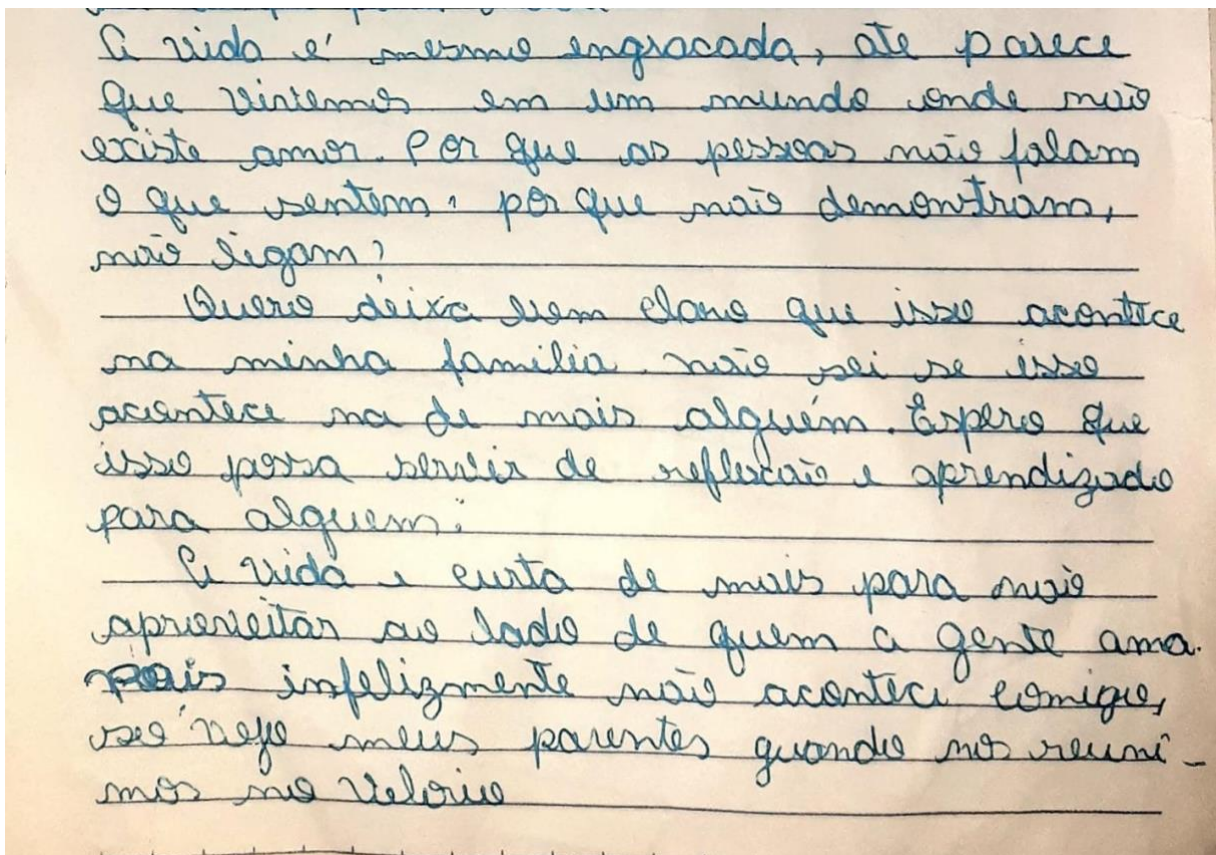 A vida é mesmo engracada, ate parece
que vivemos em um mundo onde não
existe amor. Por que as pessoas não falam
o que sentem, por que não demonstram,
não ligam?
Quero deixa bem claro que isso acontece
na minha família. não sei se isso
acontece na de mais alguém. Espero que
isso possa servir de reflexão e aprendizado
para alguem.
A vida e curta de mais para não
aproveitar ao lado de quem a gente ama.
pois infelizmente não acontece comigo,
só vejo meus parentes quando nos reuni-
mos no velorio